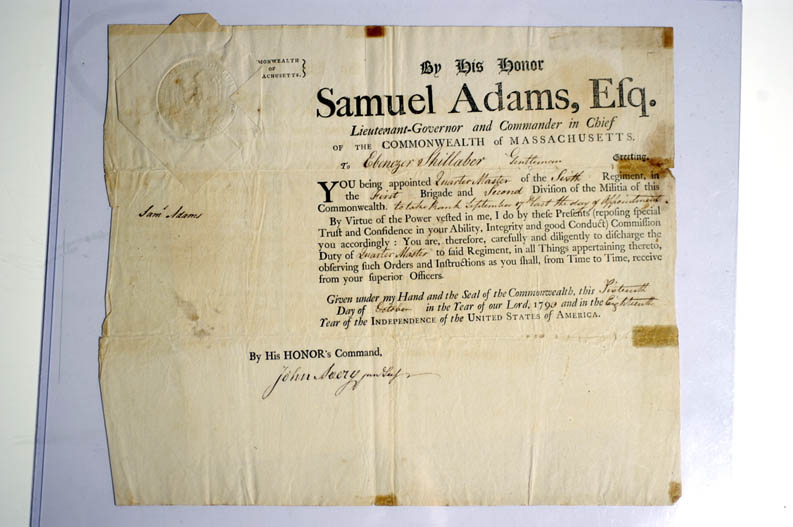 MONWEALTH
OF
ACHUSETTS.
By His Honor
Samuel Adams, Eſq.
Lieutenant-Governor and Commander in Chief
OF THE COMMONWEALTH of MASSACHUSETTS.
To Ebenezer Shillaber Gentleman Greeting.
YOU being appointed Quarter Master of the Sixth Regiment, in
the First Brigade and Second Division of the Militia of this
Commonwealth. to take Rank September 9th last the day of Appointment
By Virtue of the Power veſted in me, I do by theſe Preſents (repoſing ſpecial
Truſt and Confidence in your Ability, Integrity and good Conduct) Commiſſion
you accordingly: You are, therefore, carefully and diligently to diſcharge the
Duty of Quarter Master to ſaid Regiment, in all Things appertaining thereto,
obſerving ſuch Orders and Inſtructions as you ſhall, from Time to Time, receive
from your ſuperior Officers.
Given under my Hand and the Seal of the Commonwealth, this Sixteenth
Day of October in the Year of our Lord, 1793 and in the Eighteenth
Year of the INDEPENDENCE of the UNITED STATES of AMERICA.
Samˡ Adams
By His HONOR's Command,
John Avery jun Secʸ